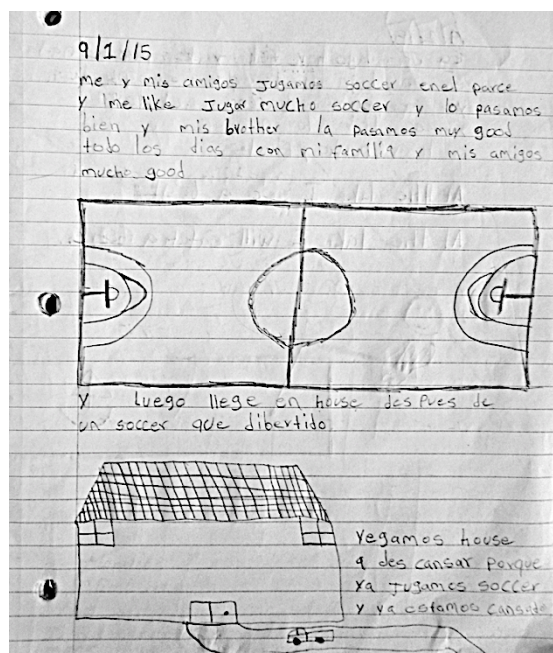 9/1/15
me y mis amigos Jugamos soccer enel parce
y Ime like Jugar mucho soccer y lo pasamos
bien y mis brother la pasamos muy good
todo los dias con mi familia y mis amigos
mucho good
y Luego llege en house des pues de
un soccer que dibertido
yegamos house
a des cansar porque
ya Jugamos soccer
y ya estamos cansado